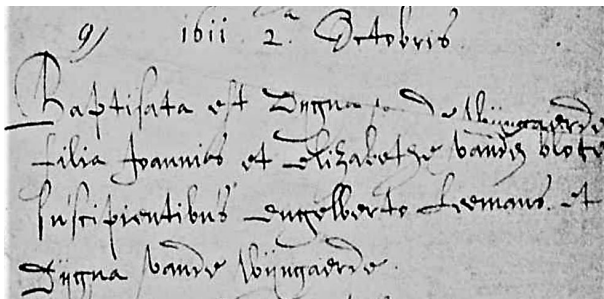 9) 1611 2a Octobris
Baptisata est Dijgna de Wijngaerde
filia Joannis et Elizabethe vanden blote
suscipientibus Engelberto Leemans et
Dijgna vande Wijngaerde